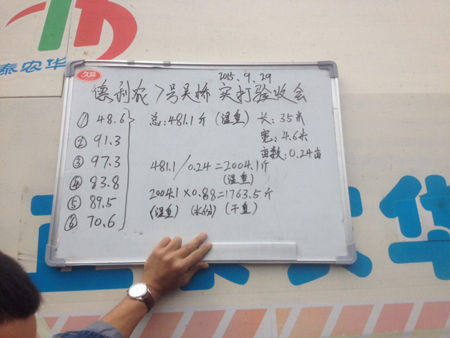 泰农华
久益
2015.9.29
德利农7号吴桥实打验收会
① 48.6
② 91.3
③ 97.3
④ 83.8
⑤ 89.5
⑥ 70.6
总:481.1斤 (湿重)
长:35米
宽:4.6米
亩数:0.24亩
481.1/0.24=2004.1斤
(湿重)
2004.1×0.88=1763.5斤
(湿重) (水份) (干重)